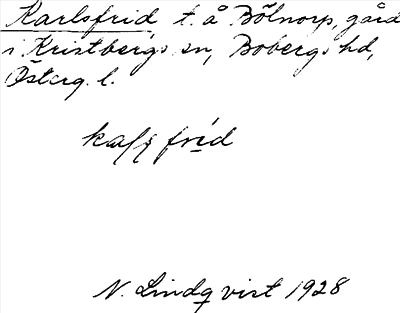 Karlsfrid t. å Bölnorp, gård
i Kristbergs sn, Bobergs hd,
Österg. l.
frid
N. Lindqvist 1928